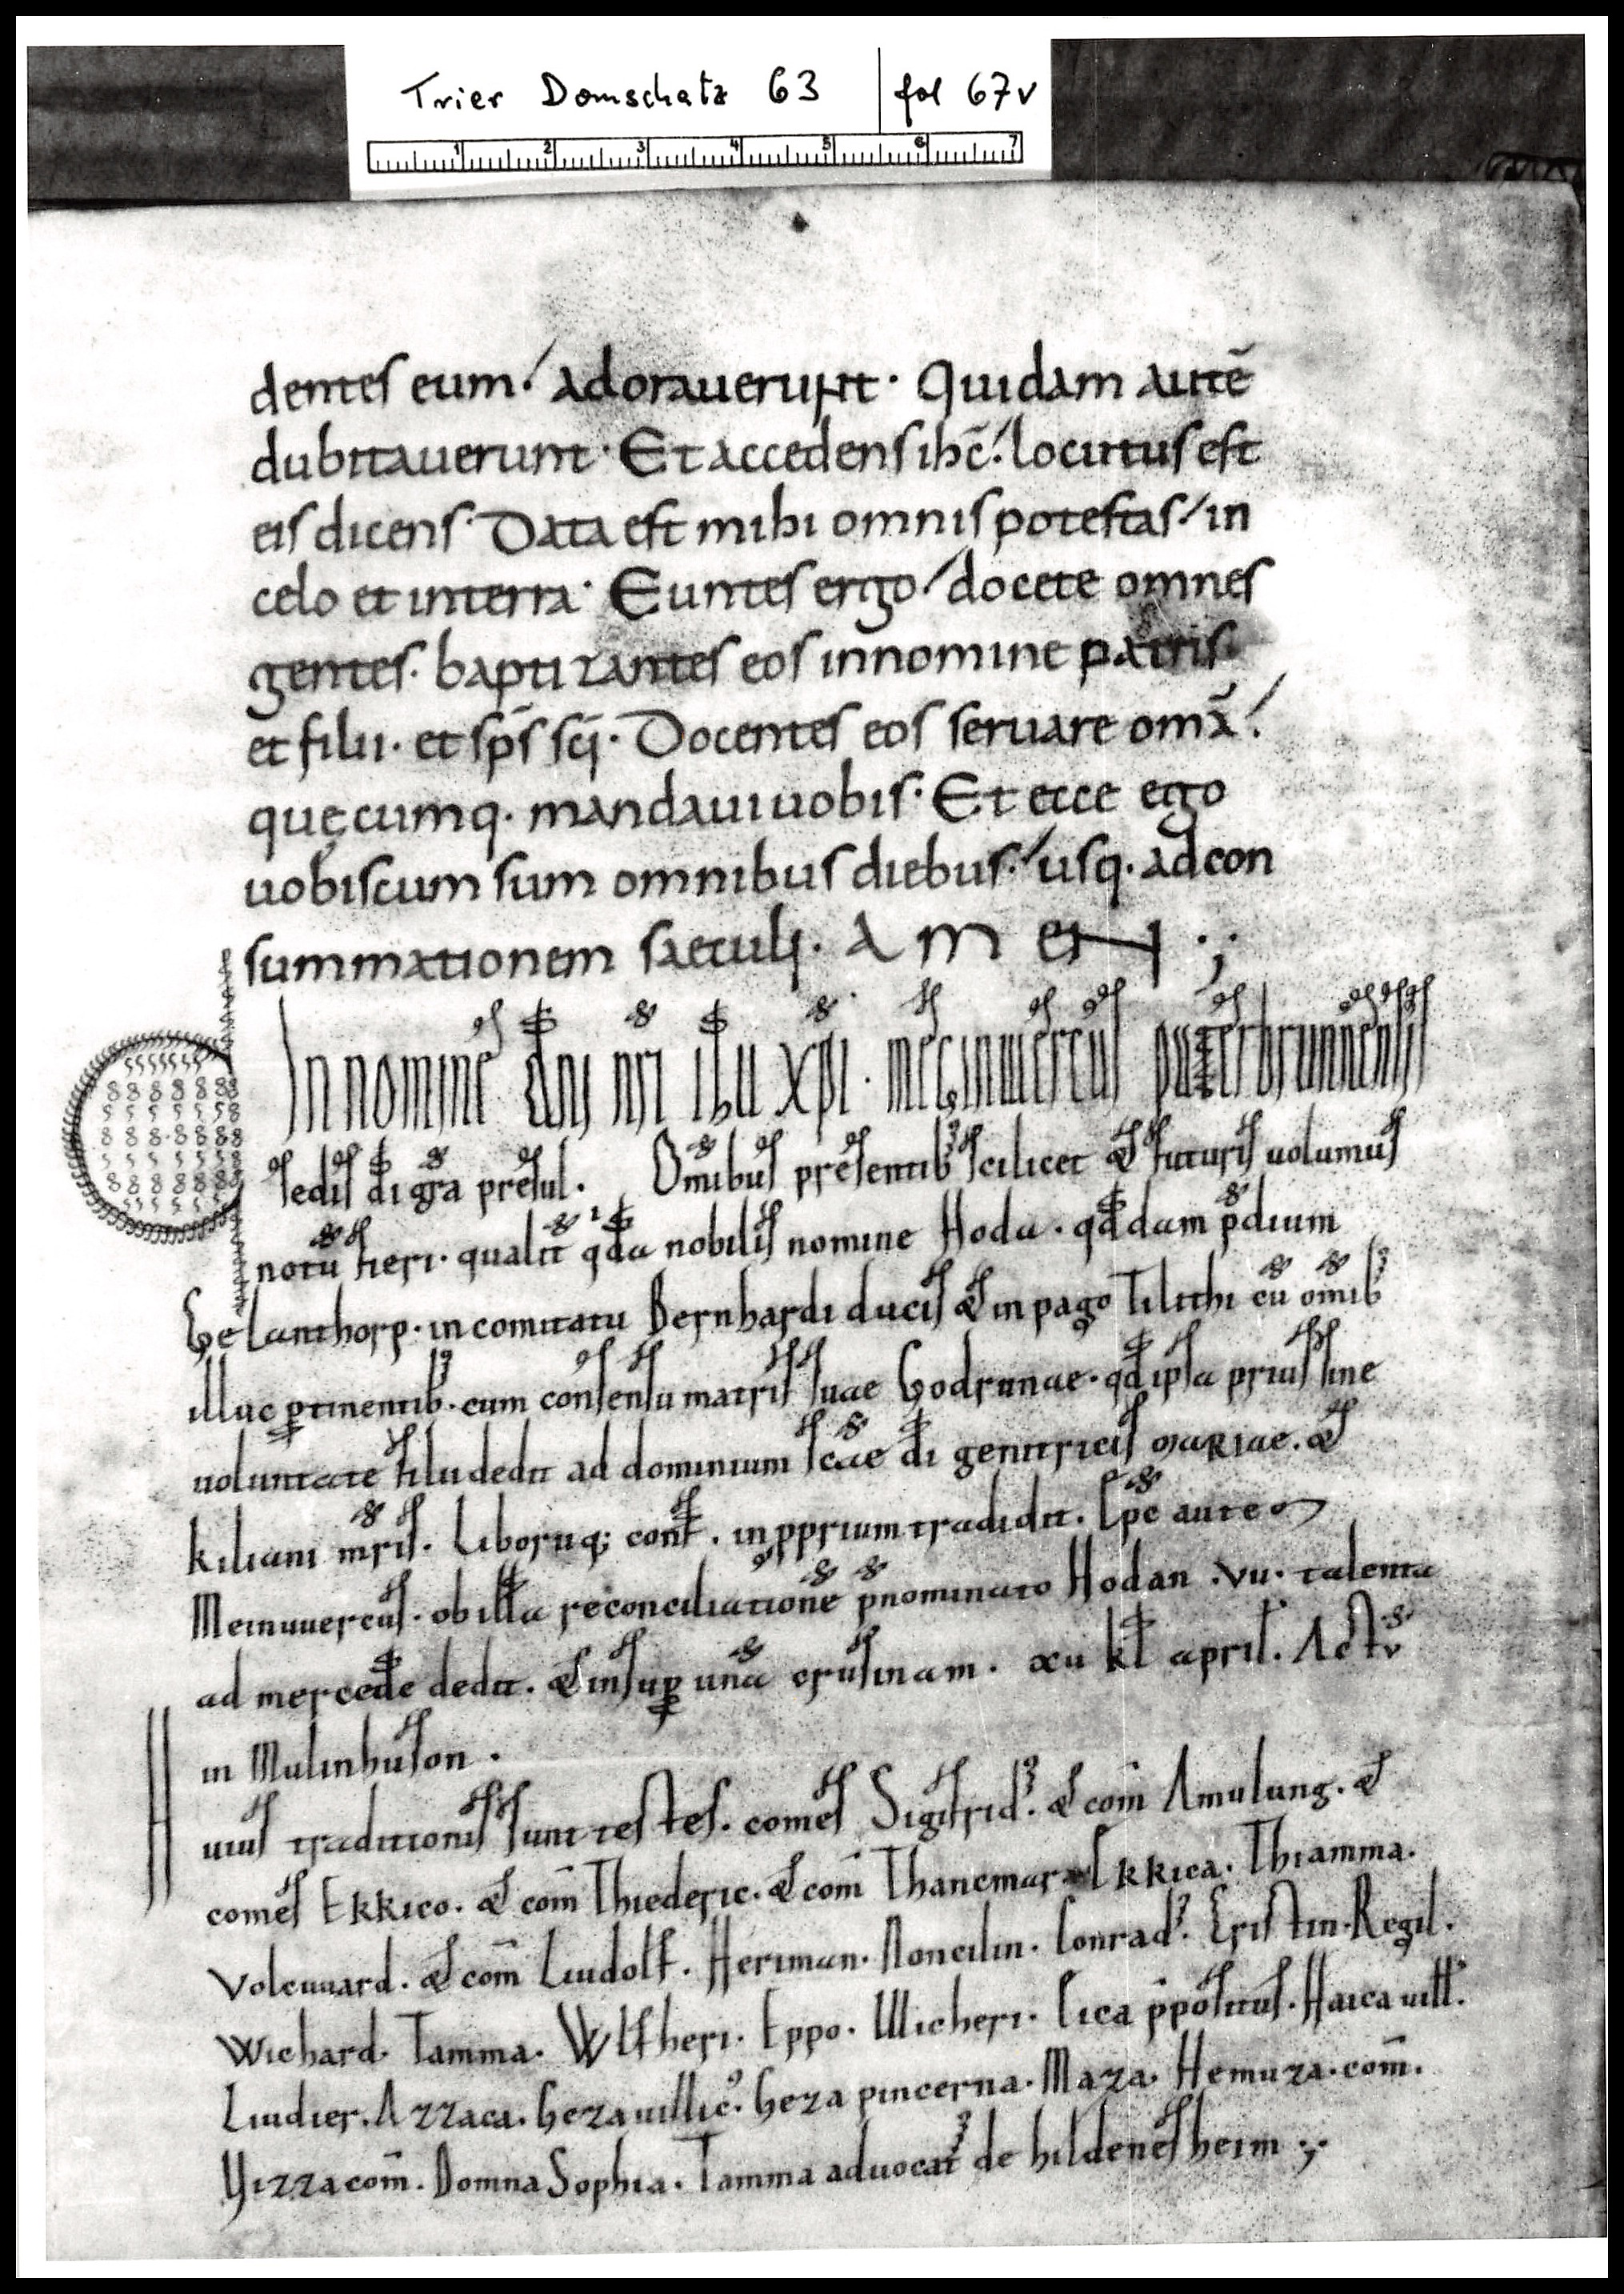 Trier Domschatz 63 | fol 67v
1 2 3 4 5 6 7
dentes eum. adorauerunt. Quidam autē
dubitauerunt. Et accedens ihc̄. locutus est
eis dicens. Data est mihi omnis potestas. in
celo et interra. Euntes ergo docete omnes
gentes. baptizantes eos innomine patris.
et filii. et sp̄s sc̄i. Docentes eos seruare om̄a.
quęcumq. mandaui uobis. Et ecce ego
uobiscum sum omnibus diebus. usq. ad con
summationem saeculi. AMEN.;
In nomine dn̄i nr̄i ihu xpi. meginuuercus patherbrunnensis
sedis di gr̄a presul. Om̄ibus presentib; scilicet & futuris uolumus
notū fieri. qualit̄ qda nobilis nomine Hoda. qddam p̄dium
Gelanthorp. in comitatu Bernhardi ducis & in pago Tilithi cū om̄ib;
illuc ꝑtinentib;. cum consensu matris suae Godrunae. qd ipsa prius sine
uoluntate filii dedit ad dominium sc̄ae di genitricis MARIAE. &
kiliani mr̄is. Liboriiq; conf. in pprium tradidit. Ep̄c autem
Meinuuercus. ob illā reconciliationē p̄nominato Hodan. VII. talenta
ad mercedē dedit. & insuꝑ unā crusinam. xu kl april. Actū
in Mulinhuson.
Huius traditionis sunt testes. comes Sigifrid;. & com̄ Amulung. &
comes Ekkico. & com̄ Thiederic. & com̄ Thancmar. Ekkica. Thiamma.
Volcuuard. & com̄ Liudolf. Heriman. Noncilin. Conrad;. Eristin. Regil.
Wichard. Tamma. Wlfheri. Eppo. Wicheri. Cica p̄positus. Haica uill.
Liudier. Azzaca. heza uillic;. heza pincerna. Maza. Hemuza. com̄.
Yizza com̄. Domna Sophia. Tamma aduocat; de hildenesheim;.